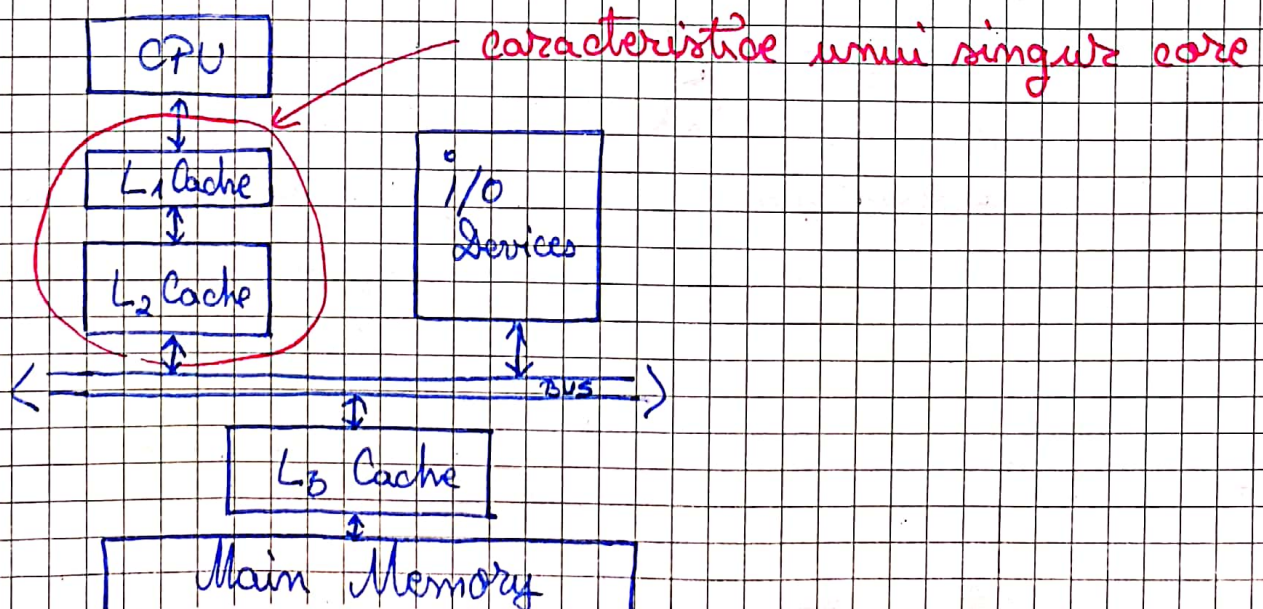 CPU
caracteristice unui singur core
L1 Cache
i/O
Devices
L2 Cache
BUS
L3 Cache
Main Memory